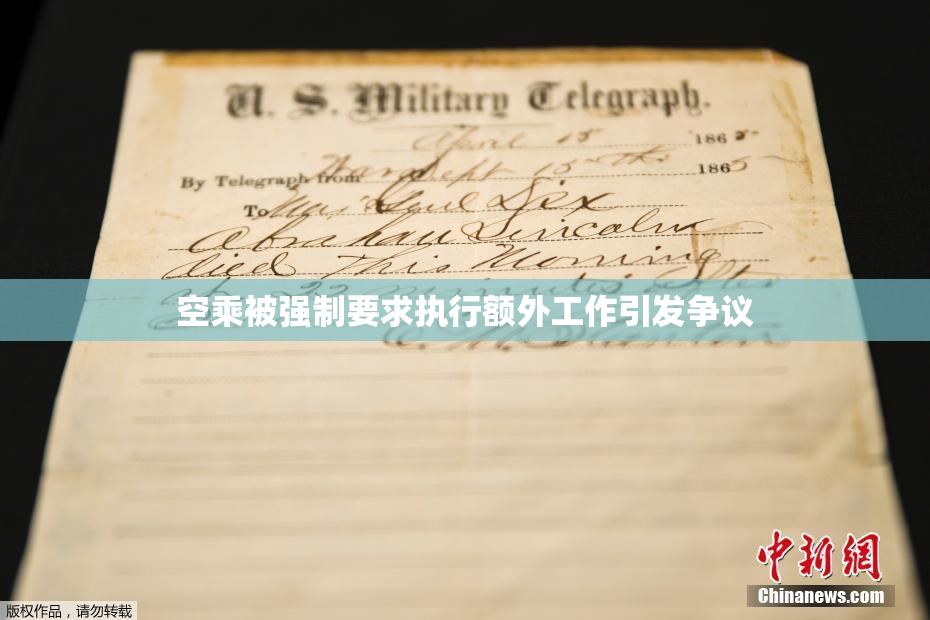 U. S. Military Telegraph.
April 15 1865
By Telegraph from War Dept 15th 1865
To Maj Genl Dix
Abraham Lincoln
died This Morning
at 22 minutes after
空乘被强制要求执行额外工作引发争议
E. M. Stanton
中新网
Chinanews.com
版权作品，请勿转载